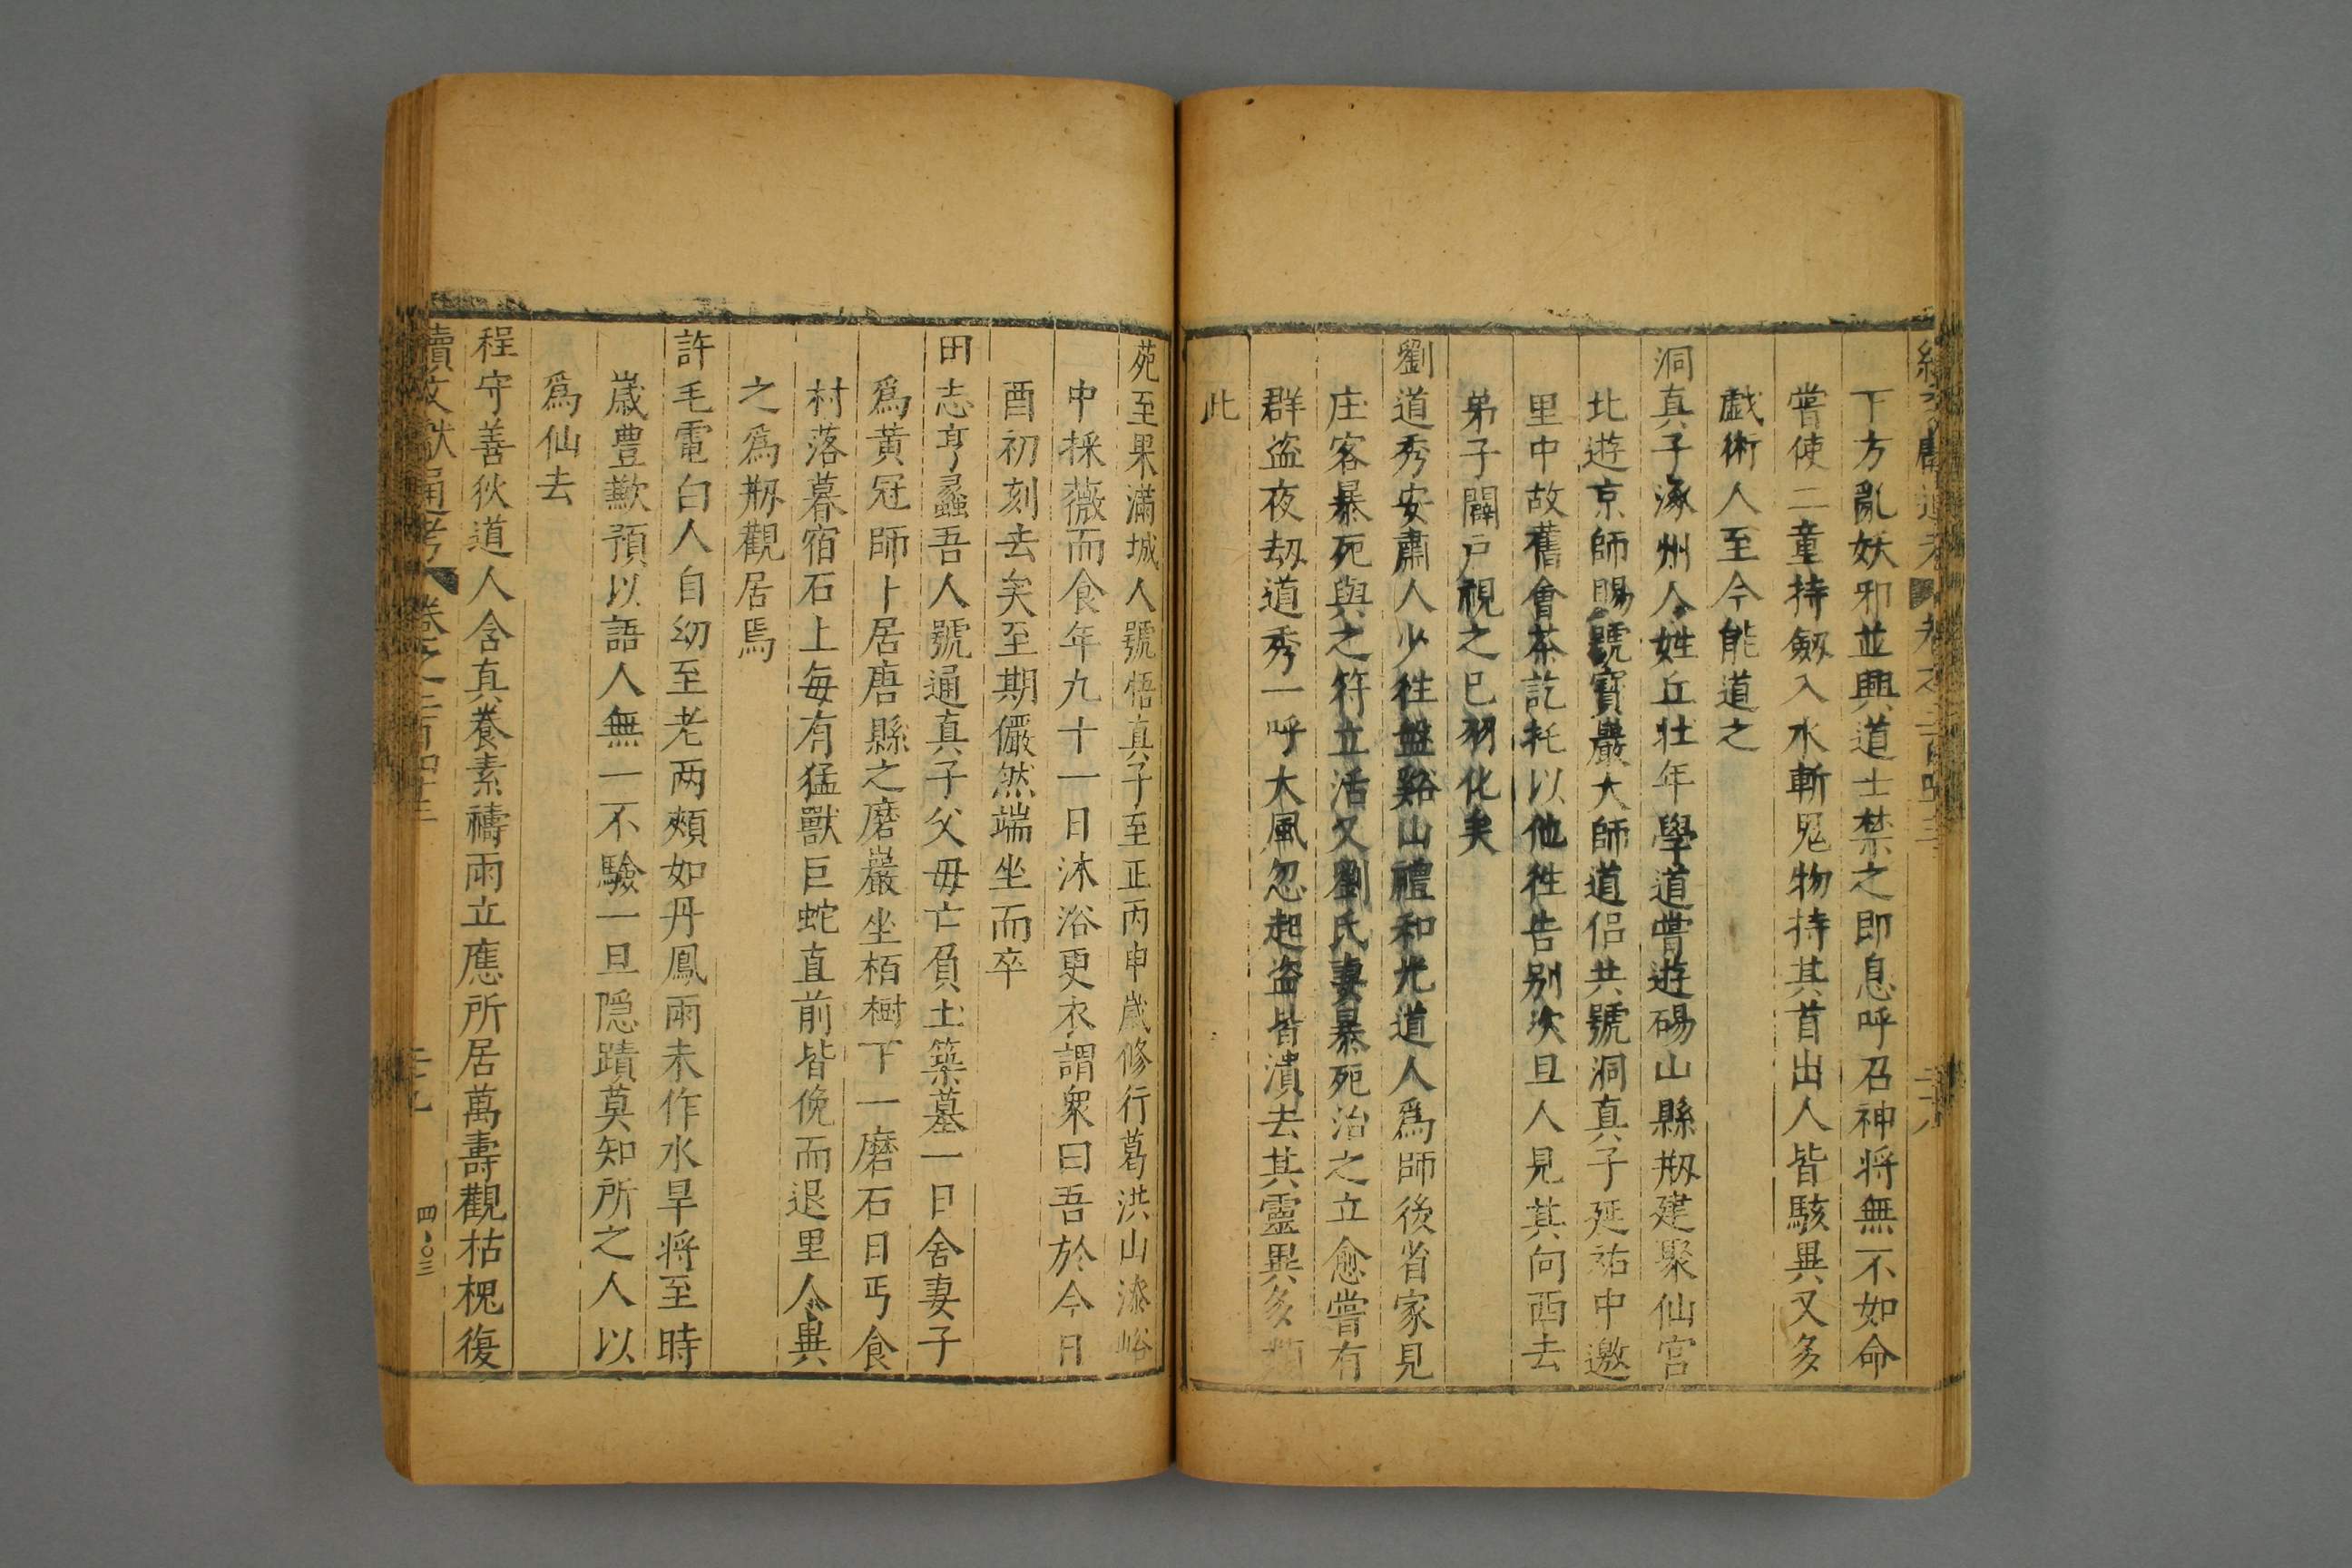 下方亂妖邪並興道士禁之即息呼召神将無不如命
嘗使二童持劔入水斬鬼物持其首出人皆駭異又多
戯術人至今能道之
洞真子涿州人姓丘壮年學道嘗遊碭山縣剏建聚仙宫
北遊京師賜號寳嚴大師道侣共號洞真子延祐中邀
里中故舊會茶訖托以他徃告别次旦人見其向西去
弟子闢户視之已羽化矣
劉道秀安肅人少徃盤谿山禮和光道人爲師後省家見
庄客暴死與之符立活又劉氏妻暴死治之立愈嘗有
群盗夜刼道秀一呼大風忽起盗皆潰去其靈異多類
此
苑至果滿城人號悟真子至正丙申歲修行葛洪山漆峪
中採薇而食年九十一日沐浴更衣謂衆曰吾於今日
酉初刻去矣至期儼然端坐而卒
田志亨蠡吾人號通真子父毋亡負土築墓一日舍妻子
爲黄冠師卜居唐縣之磨巖坐栢樹下一磨石日丐食
村落暮宿石上每有猛獸巨蛇直前皆俛而退里人異
之爲剏觀居焉
許毛電白人自幼至老两頰如丹鳳雨未作水旱将至時
歲豊歉預以語人無一不驗一旦隠蹟莫知所之人以
爲仙去
程守善狄道人含真養素禱雨立應所居萬壽觀枯槐復
續文獻通考 卷之二百四十三 二十九 四·〇三